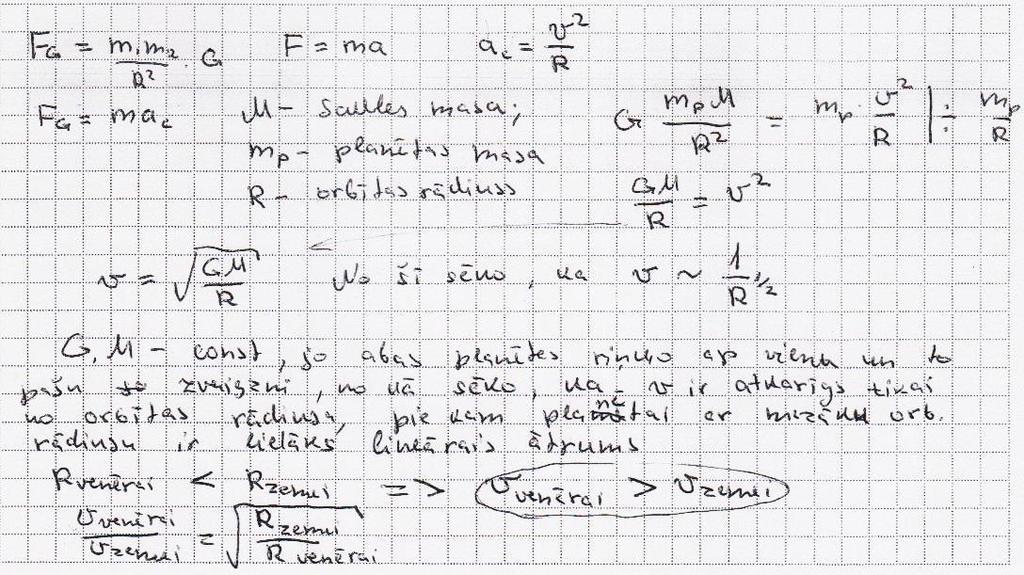 F_G = m₁m₂/R² · G F = ma a_c = v²/R
F_G = ma_c M – Saules masa; G m_p M/R² = m_p · v²/R | ÷ m_p/R
m_p – planētas masa
R – orbītas rādiuss GM/R = v²
v = √(GM/R) No šī sēko, ka v ~ 1/R^1/2
G, M – const, jo abas planētes riņķo ap vienu un to
pašu zvaigzni, no kā sēko, ka v ir atkarīgs tikai
no orbītas rādiusa, pie kam planētai ar mazāku orb.
rādiusu ir lielāks lineārais ātrums
R venērai < R zemei => v venērai > v zemei
v venērai/v zemei = √(R zemei/R venērai)